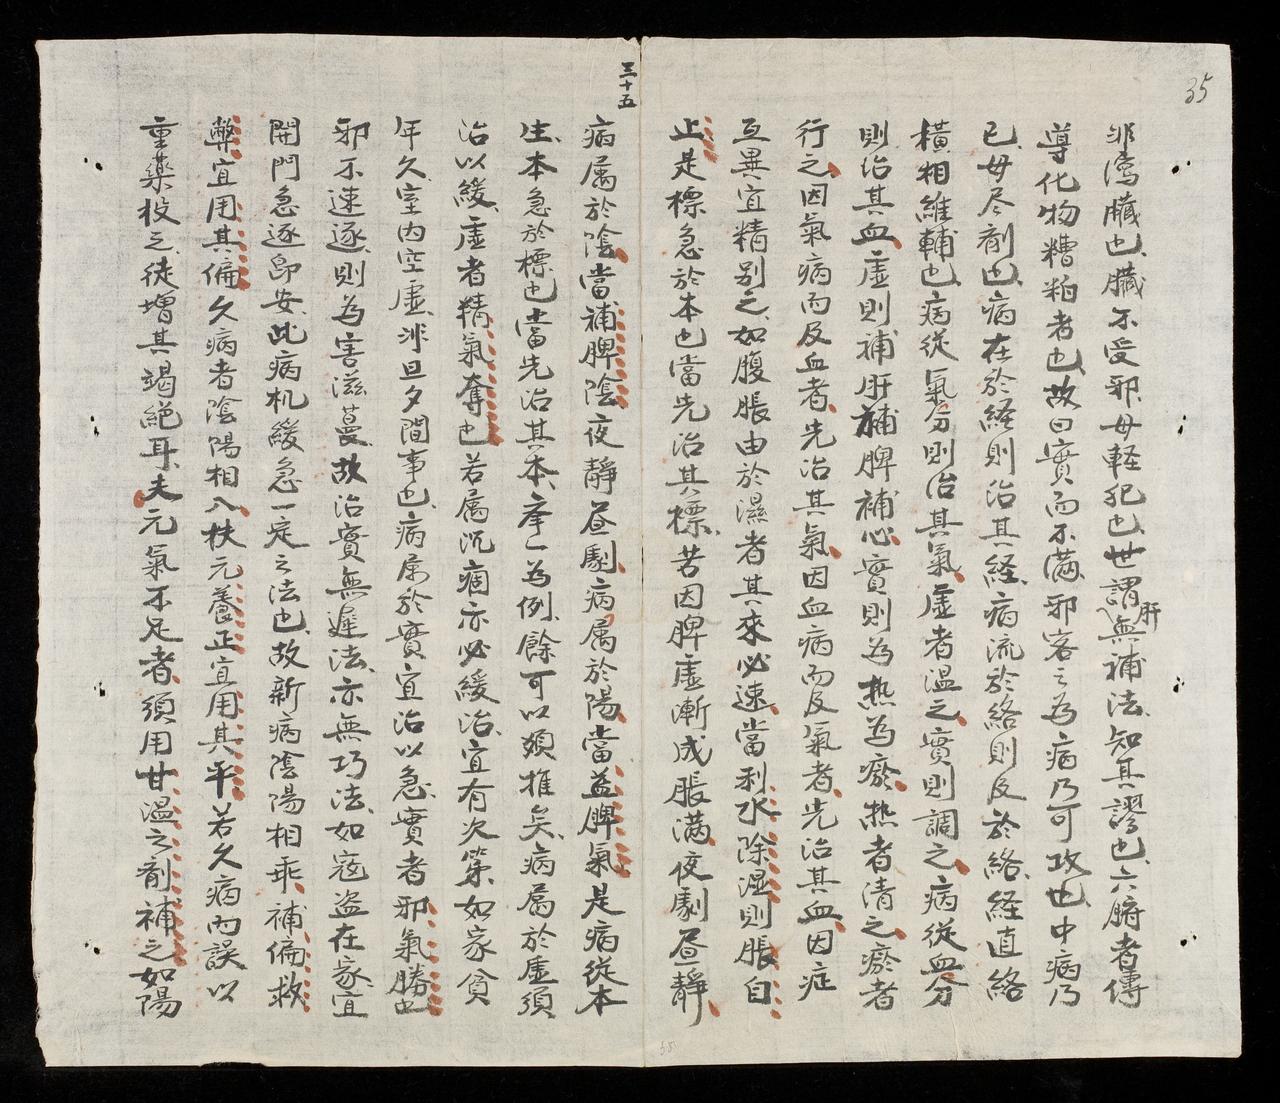 35
非瀉臟也、臟不受邪、毋軽犯也、世謂肝無補法、知其謬也、六腑者傳
導化物糟粕者也、故曰實而不滿、邪客之為病乃可攻也、中病乃
已、毋尽劑也、病在於経則治其経、病流於絡則及於絡、経直絡
橫相維輔也、病從氣分則治其氣、虛者温之、實則調之、病從血分
則治其血、虛則補肝補脾補心、實則為热為瘀、热者清之、瘀者
行之、因氣病而及血者、先治其氣、因血病而及氣者、先治其血、因症
互異宜精别之、如腹脹由於濕者其來必速、當利水除湿則脹自
止、是標急於本也、當先治其標、苦因脾虛漸成脹满、夜劇昼靜、
三十五
病属於陰、當補脾陰、夜靜昼劇、病属於陽、當益脾氣、是病從本
生、本急於標也、當先治其本、舉一為例、餘可以類推矣、病属於虛須
治以緩、虛者精氣奪也、若属沉痼亦必緩治、宜有次第、如家貧
年久、室内空虛、非旦夕間事也、病属於實宜治以急、實者邪氣勝也
邪不速逐、則為害滋蔓、故治實無遲法、亦無巧法、如寇盗在家、宜
開門急逐即安、此病机緩急一定之法也、故新病陰陽相乖、補偏救
弊宜用其偏、久病者陰陽相入、扶元養正宜用其平、若久病而誤以
重藥投之、徒增其竭絕耳、夫元氣不足者、須用甘温之劑補之、如陽